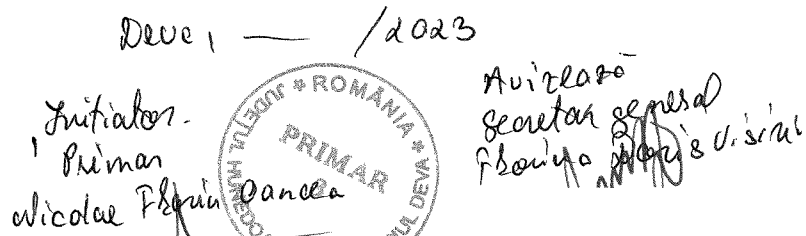 Deva, — /2023
Inițiator.
Primar
Nicolae Florin Oancea
ROMÂNIA * JUDEȚUL HUNEDO
PRIMAR
UL DEVA *
Avizează
Secretar general
Florina Doris Visirin